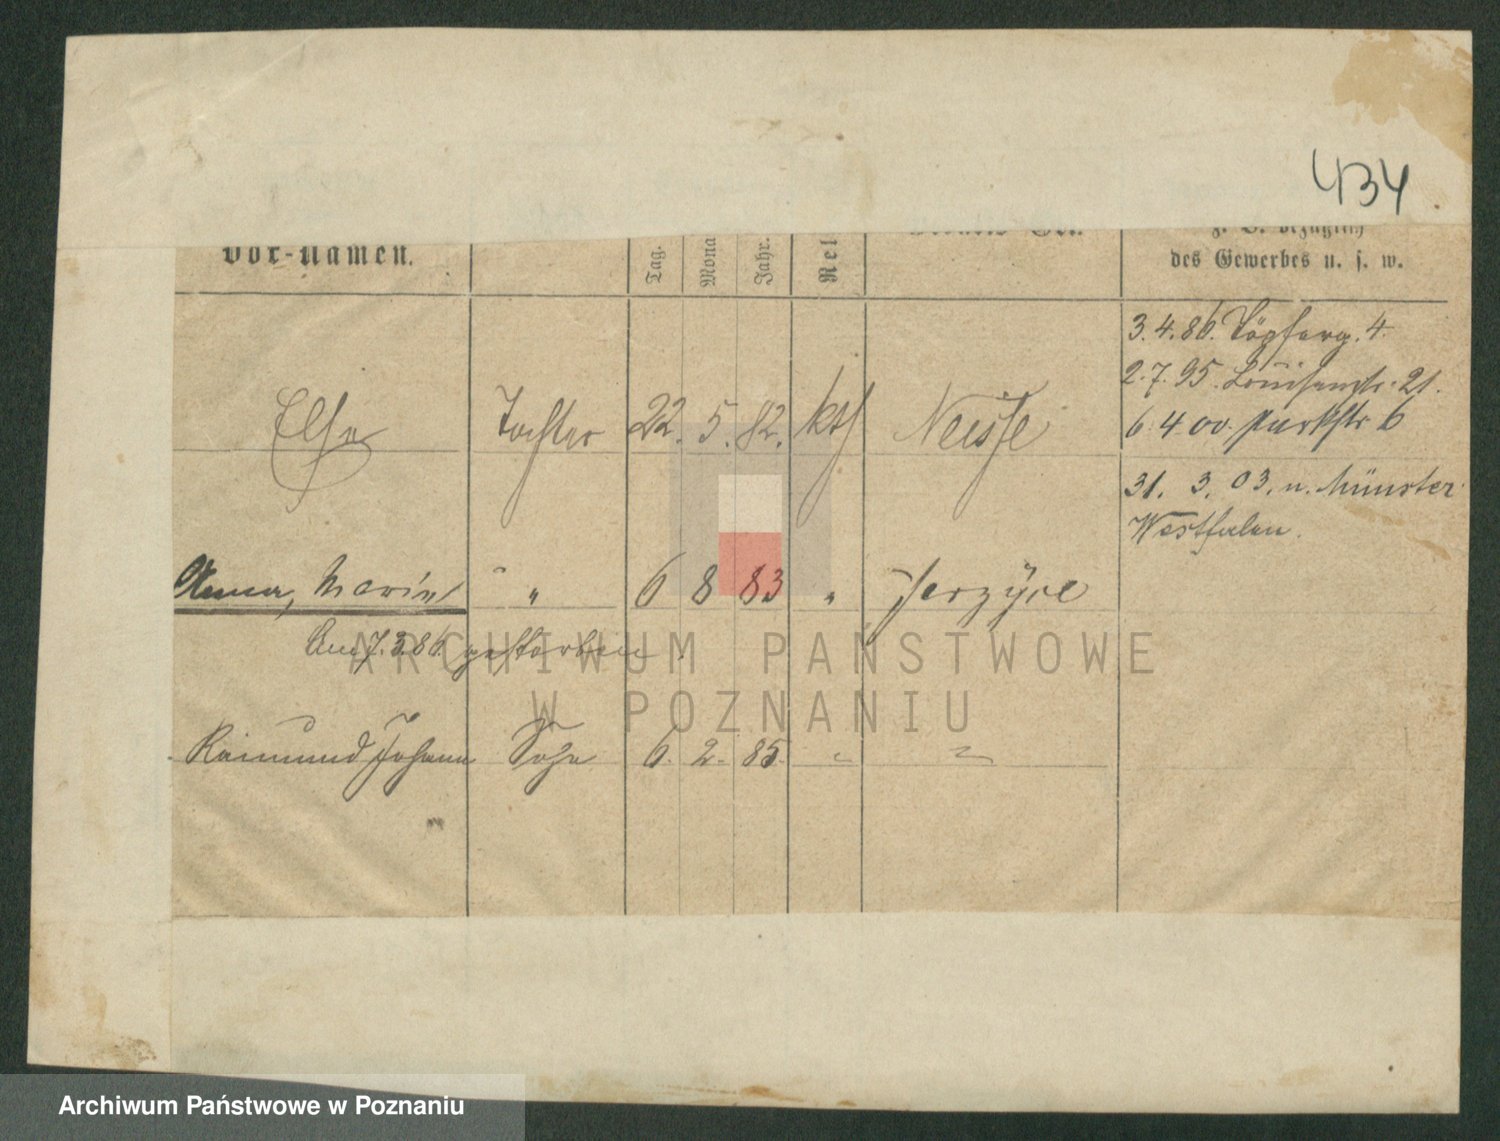 434
Vor-Namen.
Tag.
Mona
Jahr.
Rel
z. B. bezüglich
des Gewerbes u. s. w.
3.4.86. Töpferg. 4.
2.7.95. Louisenstr. 21.
Else Tochter 22. 5. 82. kth Neisse
6.4.00. Parkstr. 6
31. 3. 03. n. Münster
Westfalen.
Anna, Maria " 6 8 83 " Jerzyce
Am 7.3.86. gestorben.
Raimund Johann Sohn 6. 2. 85. " "
ARCHIWUM PAŃSTWOWE
W POZNANIU
Archiwum Państwowe w Poznaniu